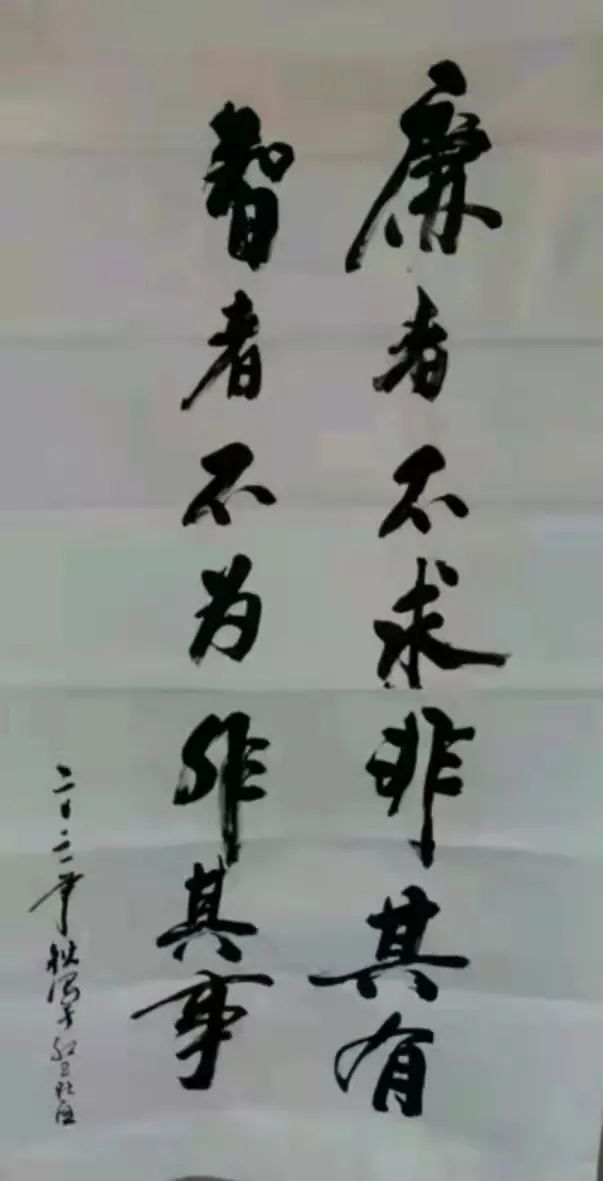 廉者不求非其有
智者不为非其事
二〇二一年秋写于红卫社区